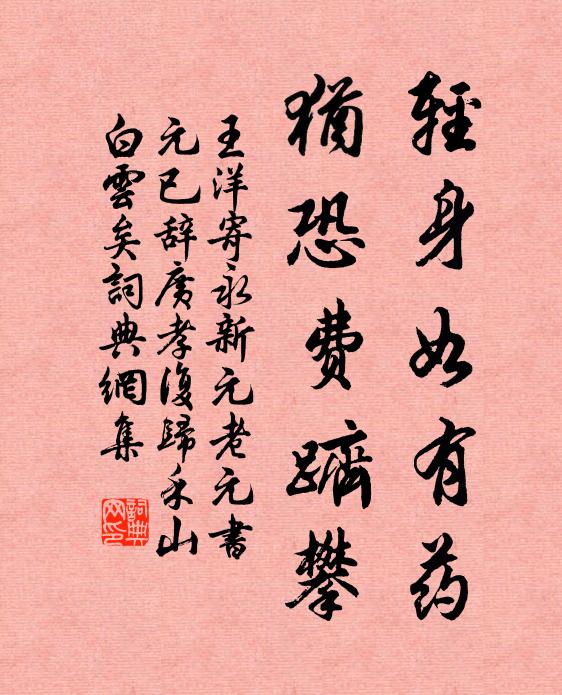 輕身如有药
猶恐費躋攀
王洋寄永新元老元書
元已辞廣孝復歸禾山
白雲矣詞典網集
詞典网印